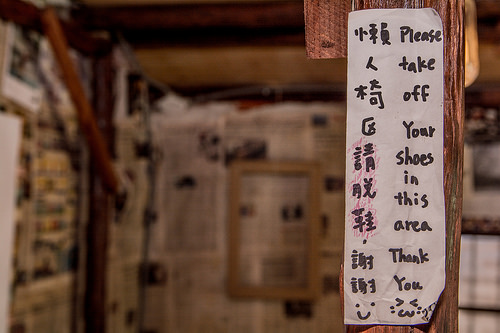 懶人椅区請脫鞋，謝謝
Please
take
off
Your
shoes
in
this
area
Thank
You